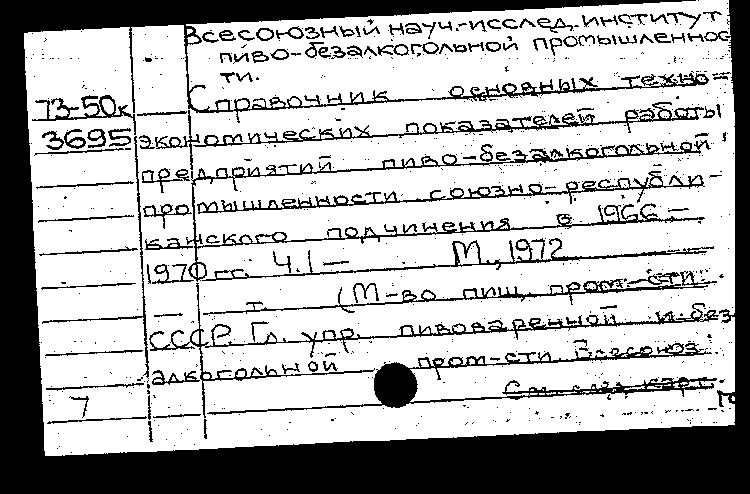 Всесоюзный науч.-исслед. институт
пиво-безалкогольной промышленнос
ти.
73-50к Справочник основных техно=
3695 экономических показателей работы
предприятий пиво-безалкогольной
промышленности союзно-республи-
канского подчинения в 1966-
1970 гг. Ч.1— М., 1972
I. (М-во пищ. пром-сти
СССР. Гл. упр. пивоваренной и без
алкогольной пром-сти. Всесоюз.
7 См. след. карт.